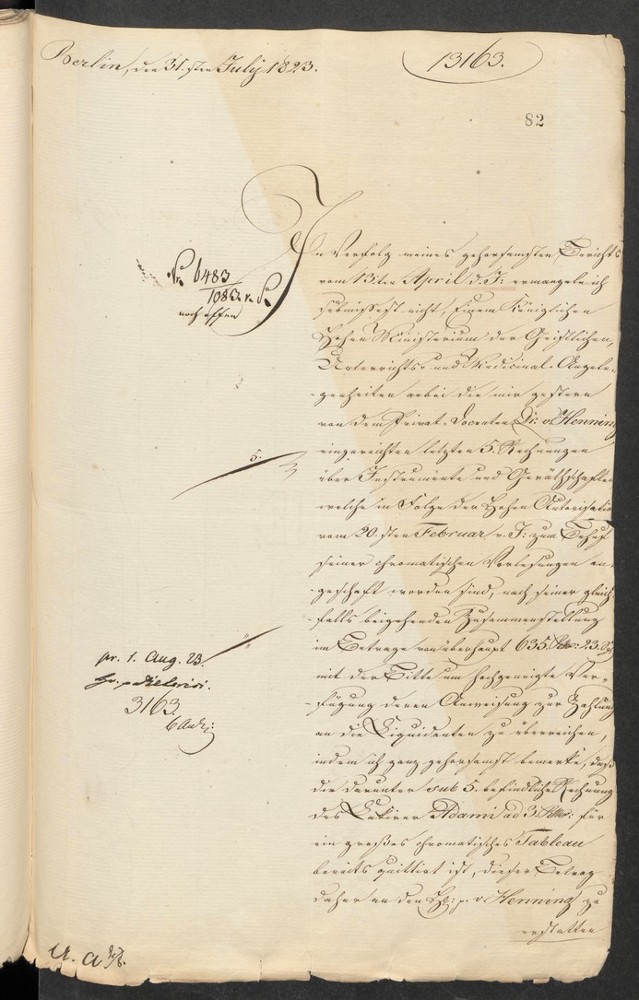 Berlin, den 31.sten July 1823.
13163.
82
In Verfolg meines gehorsamsten Berichts
vom 13ten April d. J: ermangele ich
submissest nicht, Einem Königlichen
Hohen Ministerium der Geistlichen,
Unterrichts- und Medicinal-Angele-
genheiten anbei die mir gestern
von dem Privat-Docenten Dr: v. Henning
eingereichten letzten 5. Rechnungen
über Instrumente und Geräthschaften
welche in Folge der Hohen Autorisation
vom 20.sten Februar v. J: zum Behuf
seiner chromatischen Vorlesungen an-
geschaft worden sind, nach seiner gleich-
falls beigehenden Zusammenstellung
im Betrage von überhaupt 635 23
mit der Bitte um hochgeneigte Ver-
fügung deren Anweisung zur Zahlung
an die Liquidenten zu überreichen,
indem ich ganz gehorsamst bemerke, daß
die darunter sub 5. befindliche Rechnung
des Lakirer Adami ad 3 für
ein großes chromatisches Tableau
bereits quittirt ist, dieser Betrag
daher an den v. Henning zu
erstatten
6483
1083.
noch offen
5.
pr. 1. Aug. 23.
3163.